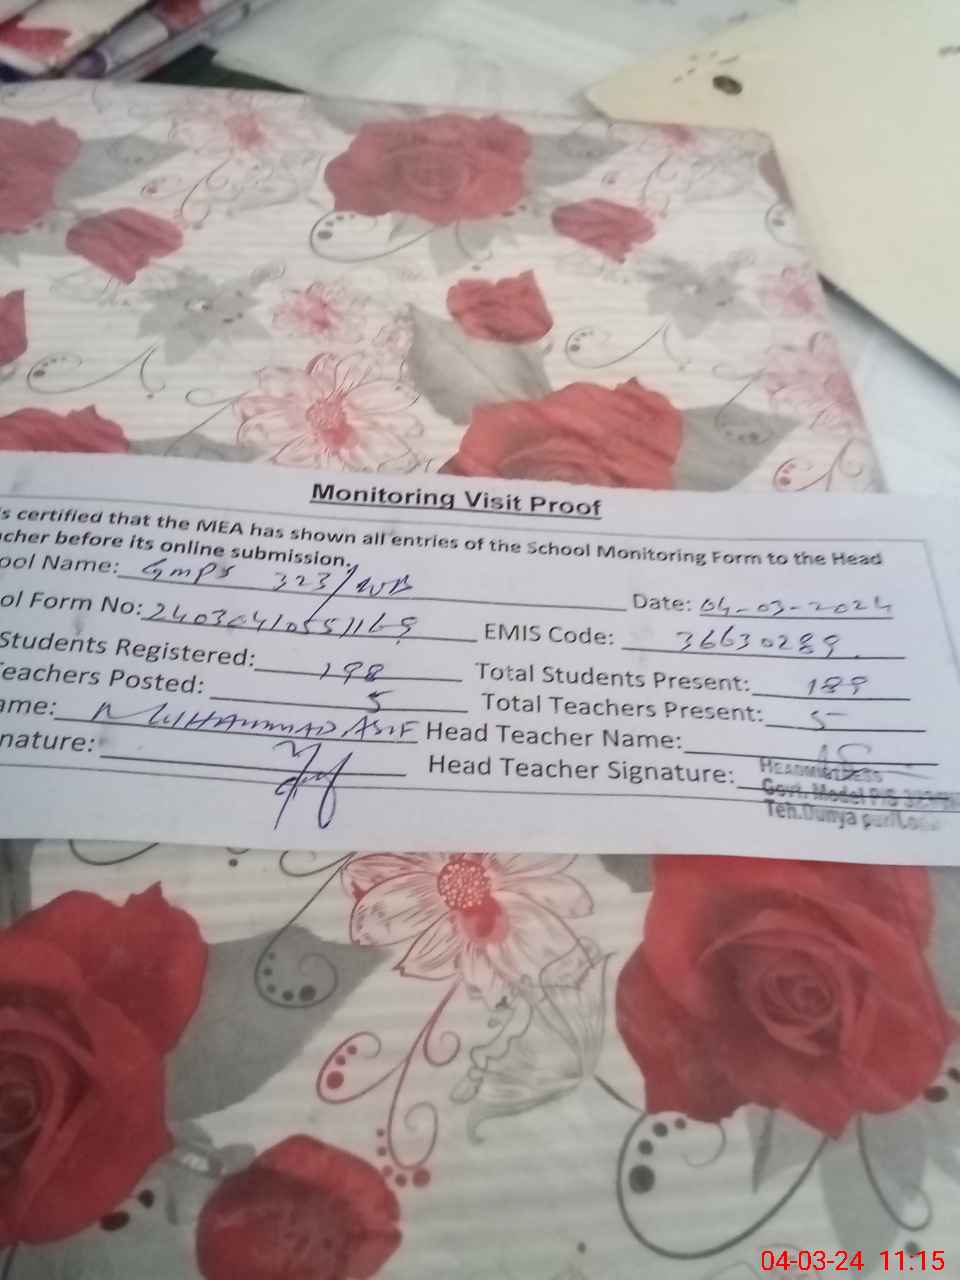 Monitoring Visit Proof
s certified that the MEA has shown all entries of the School Monitoring Form to the Head
cher before its online submission.
ool Name: GMPS 323/WB Date: 04-03-2024
ol Form No: 24030410551169 EMIS Code: 36630289
Students Registered: 198 Total Students Present: 189
eachers Posted: 5 Total Teachers Present: 5
ame: MUHAMMAD ASIF Head Teacher Name:
nature: Head Teacher Signature:
HEADMISTRESS
Govt. Model P/S 323
Teh. Dunya pur
04-03-24 11:15